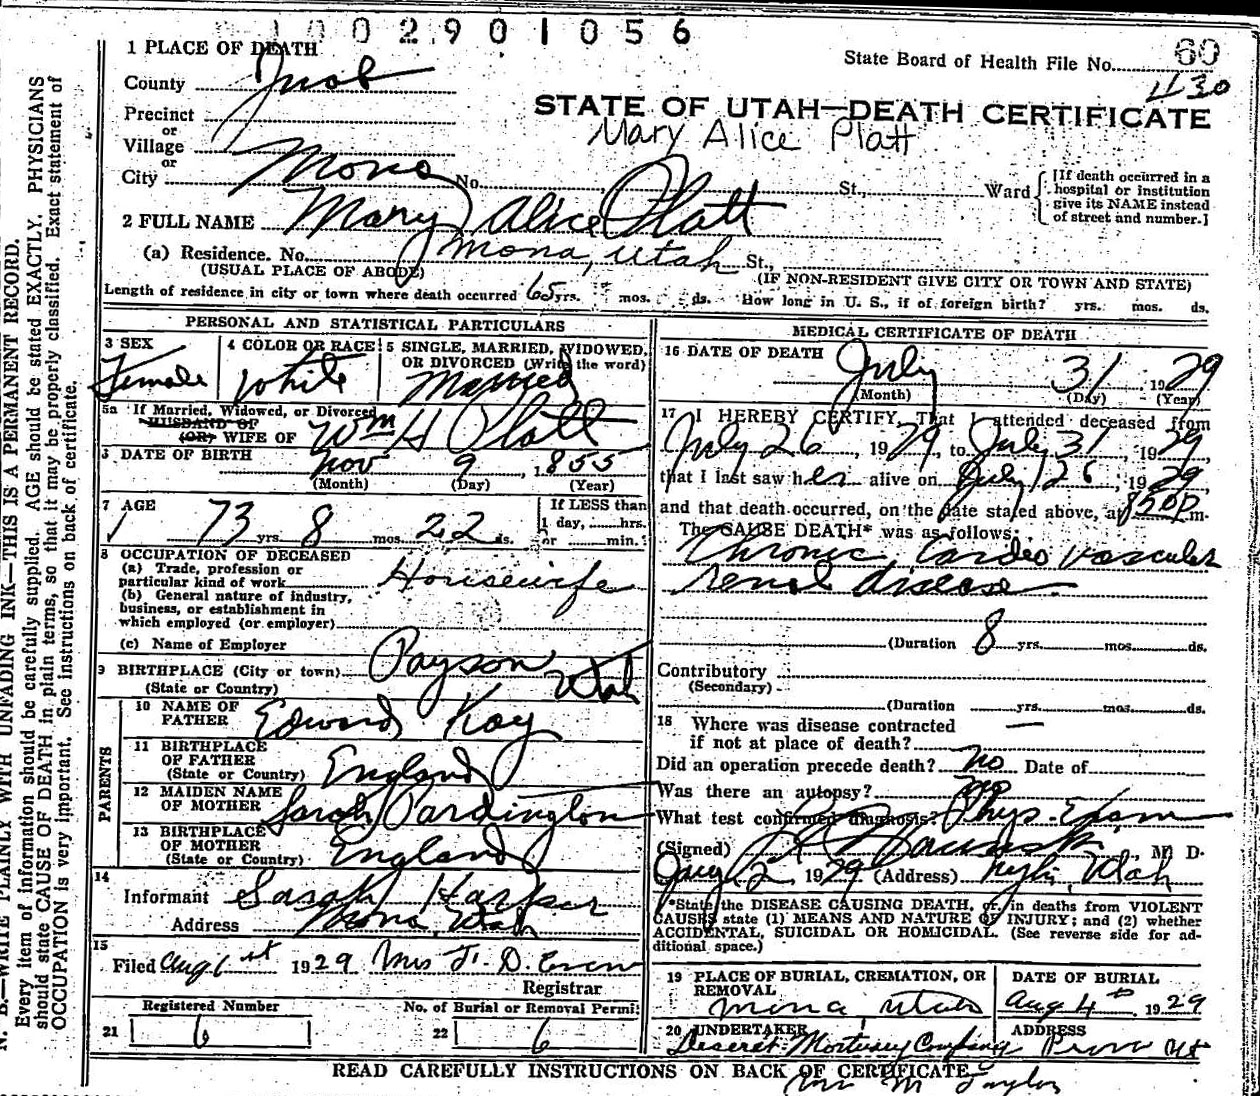 1002901056
1 PLACE OF DEATH
State Board of Health File No. 60
County Juab
430
STATE OF UTAH—DEATH CERTIFICATE
Mary Alice Platt
Precinct
or
Village
or
City Mona No. St., Ward
[If death occurred in a
hospital or institution
give its NAME instead
of street and number.]
2 FULL NAME Mary Alice Platt
(a) Residence. No. Mona, Utah St.,
(USUAL PLACE OF ABODE) (IF NON-RESIDENT GIVE CITY OR TOWN AND STATE)
Length of residence in city or town where death occurred 65 yrs. mos. ds. How long in U. S., if of foreign birth? yrs. mos. ds.
PERSONAL AND STATISTICAL PARTICULARS
3 SEX
Female
4 COLOR OR RACE
White
5 SINGLE, MARRIED, WIDOWED,
OR DIVORCED (Write the word)
Married
5a If Married, Widowed, or Divorced
HUSBAND OF
(OR) WIFE OF Wm H Platt
DATE OF BIRTH Nov 9 1855
(Month) (Day) (Year)
7 AGE
73 yrs. 8 mos. 22 ds.
If LESS than
1 day, hrs.
or min.?
8 OCCUPATION OF DECEASED
(a) Trade, profession or
particular kind of work Housewife
(b) General nature of industry,
business, or establishment in
which employed (or employer)
(c) Name of Employer
9 BIRTHPLACE (City or town) Payson
(State or Country) Utah
PARENTS
10 NAME OF
FATHER Edward Kay
11 BIRTHPLACE
OF FATHER
(State or Country) England
12 MAIDEN NAME
OF MOTHER Sarah Pardington
13 BIRTHPLACE
OF MOTHER
(State or Country) England
14
Informant Sarah Harper
Address Mona, Utah
15
Filed Aug 1st 1929 Mrs J. D.
Registrar
Registered Number
21 6
No. of Burial or Removal Permit
22 6
MEDICAL CERTIFICATE OF DEATH
16 DATE OF DEATH July 31 1929
(Month) (Day) (Year)
17 I HEREBY CERTIFY, That I attended deceased from
July 26, 1929, to July 31, 1929
that I last saw her alive on July 26, 1929
and that death occurred, on the date stated above, at 850 p m.
The CAUSE DEATH* was as follows:
Chronic Cardeo vascular
renal disease
(Duration 8 yrs. mos. ds.
Contributory
(Secondary)
(Duration yrs. mos. ds.
18 Where was disease contracted
if not at place of death? —
Did an operation precede death? no Date of
Was there an autopsy? no
What test confirmed diagnosis? Phys. Exam
(Signed) M. D.
2, 1929 (Address) Nephi, Utah
*State the DISEASE CAUSING DEATH, or, in deaths from VIOLENT
CAUSES state (1) MEANS AND NATURE OF INJURY; and (2) whether
ACCIDENTAL, SUICIDAL OR HOMICIDAL. (See reverse side for ad-
ditional space.)
19 PLACE OF BURIAL, CREMATION, OR
REMOVAL
Mona, Utah
DATE OF BURIAL
Aug 4th 1929
20 UNDERTAKER
Deseret Mortuary Company
ADDRESS
Provo Ut
READ CAREFULLY INSTRUCTIONS ON BACK OF CERTIFICATE
M Taylor
N. B.—WRITE PLAINLY WITH UNFADING INK—THIS IS A PERMANENT RECORD.
Every item of information should be carefully supplied. AGE should be stated EXACTLY. PHYSICIANS
should state CAUSE OF DEATH in plain terms, so that it may be properly classified. Exact statement of
OCCUPATION is very important. See instructions on back of certificate.